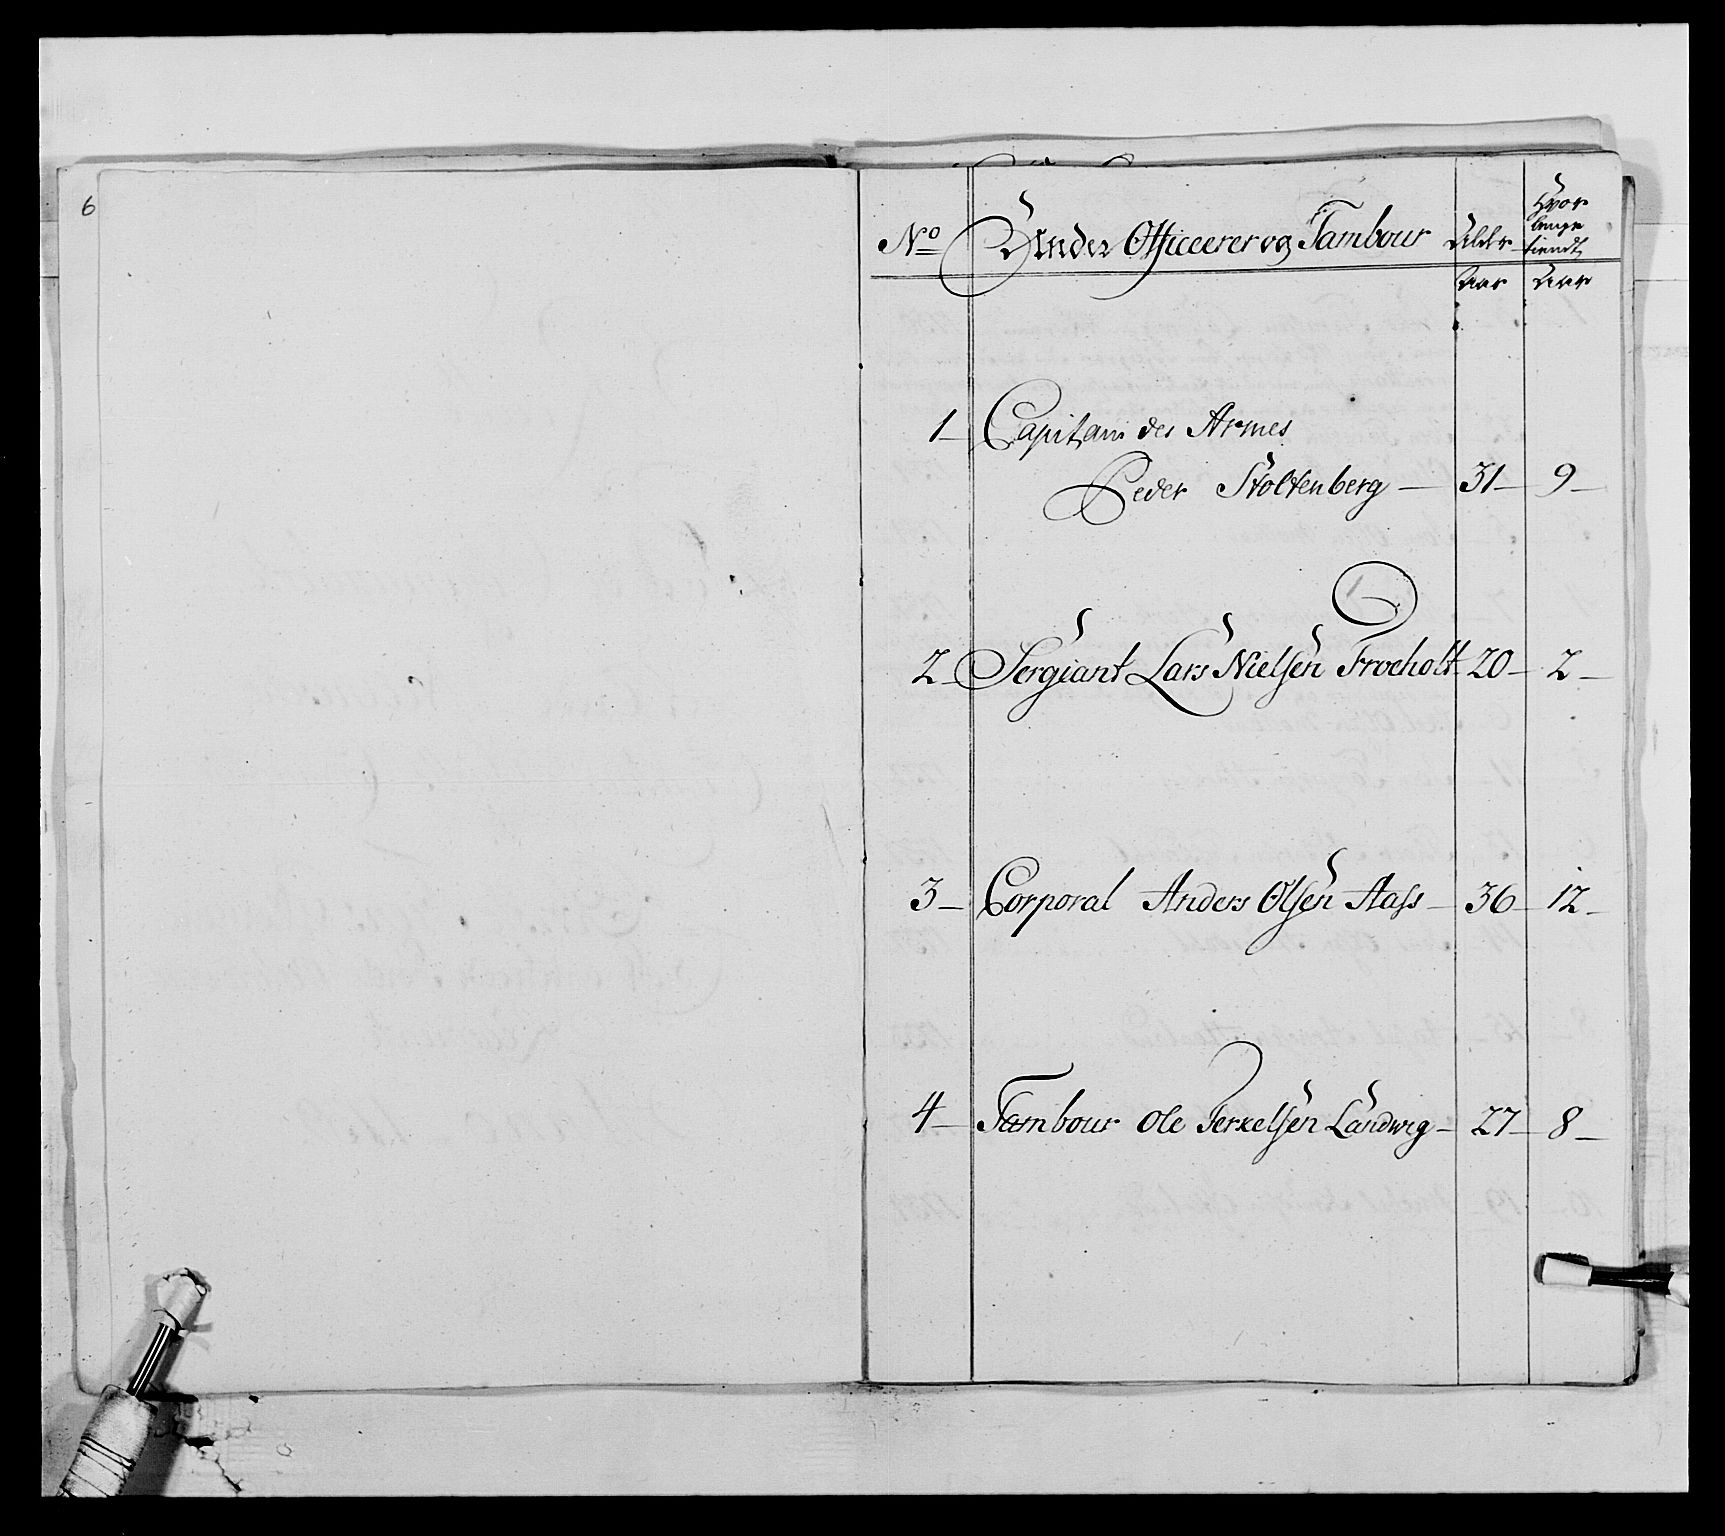 6
No Under Officeerer og Tambour Alder Hvor lenge tiendt
Aar Aar
1 Capitain des Armes
Peder Stoltenberg 31 9
2 Sergiant Lars Nielsen Froeholt 20 2
3 Corporal Anders Olsen Aass 36 12
4 Tambour Ole Terkelsen Landwig 27 8